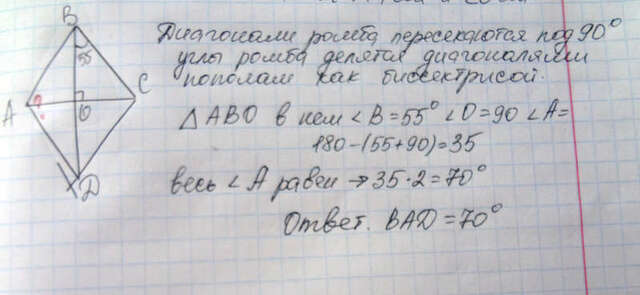 Диагонали ромба пересекаются под 90°
углы ромба делятся диагоналями
пополам как биссектрисой.
△ABO в нем <B=55° <O=90 <A=
180-(55+90)=35
весь <A равен → 35·2=70°
Ответ. BAD=70°
B
55
A
?
O
C
D